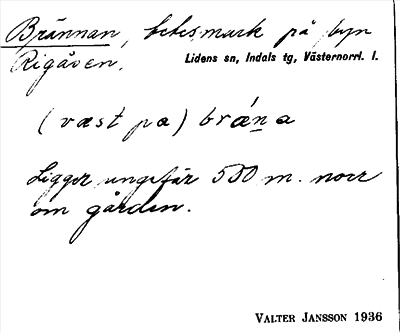 Brännan, betesmark på byn
Rigåsen.
Lidens sn, Indals tg, Västernorrl. l.
(væst pa) brána
Ligger ungefär 500 m. norr
om gården.
VALTER JANSSON 1936